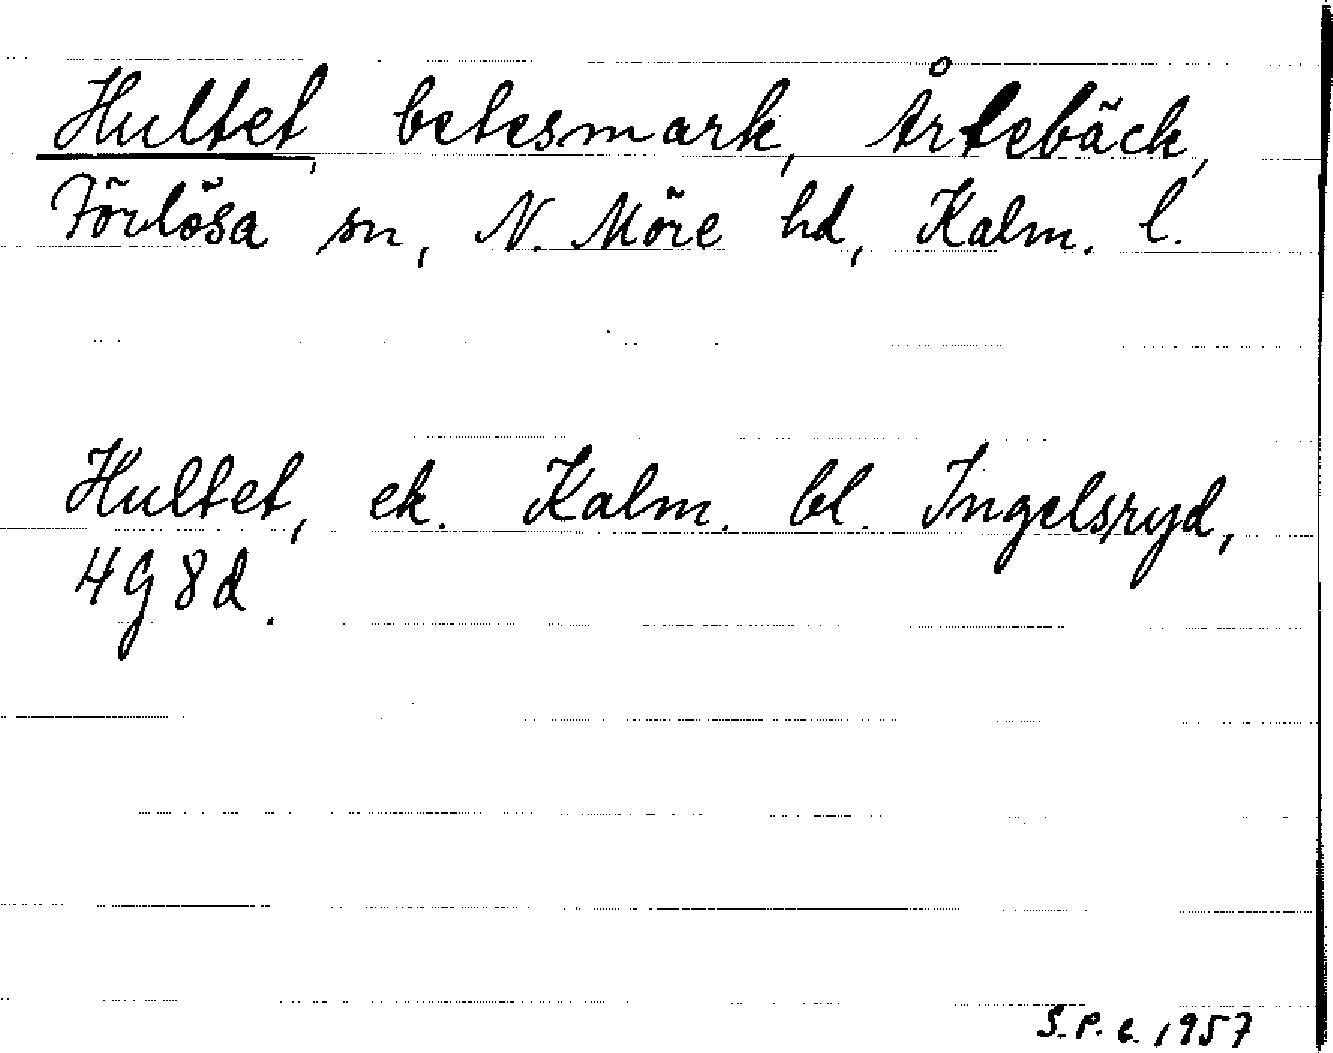 Hultet, betesmark, Årtebäck,
Förlösa sn, N. Möre hd, Kalm. l.
Hultet, ek. Kalm. bl. Ingelsryd,
4G 8d.
S.P.c. 1957